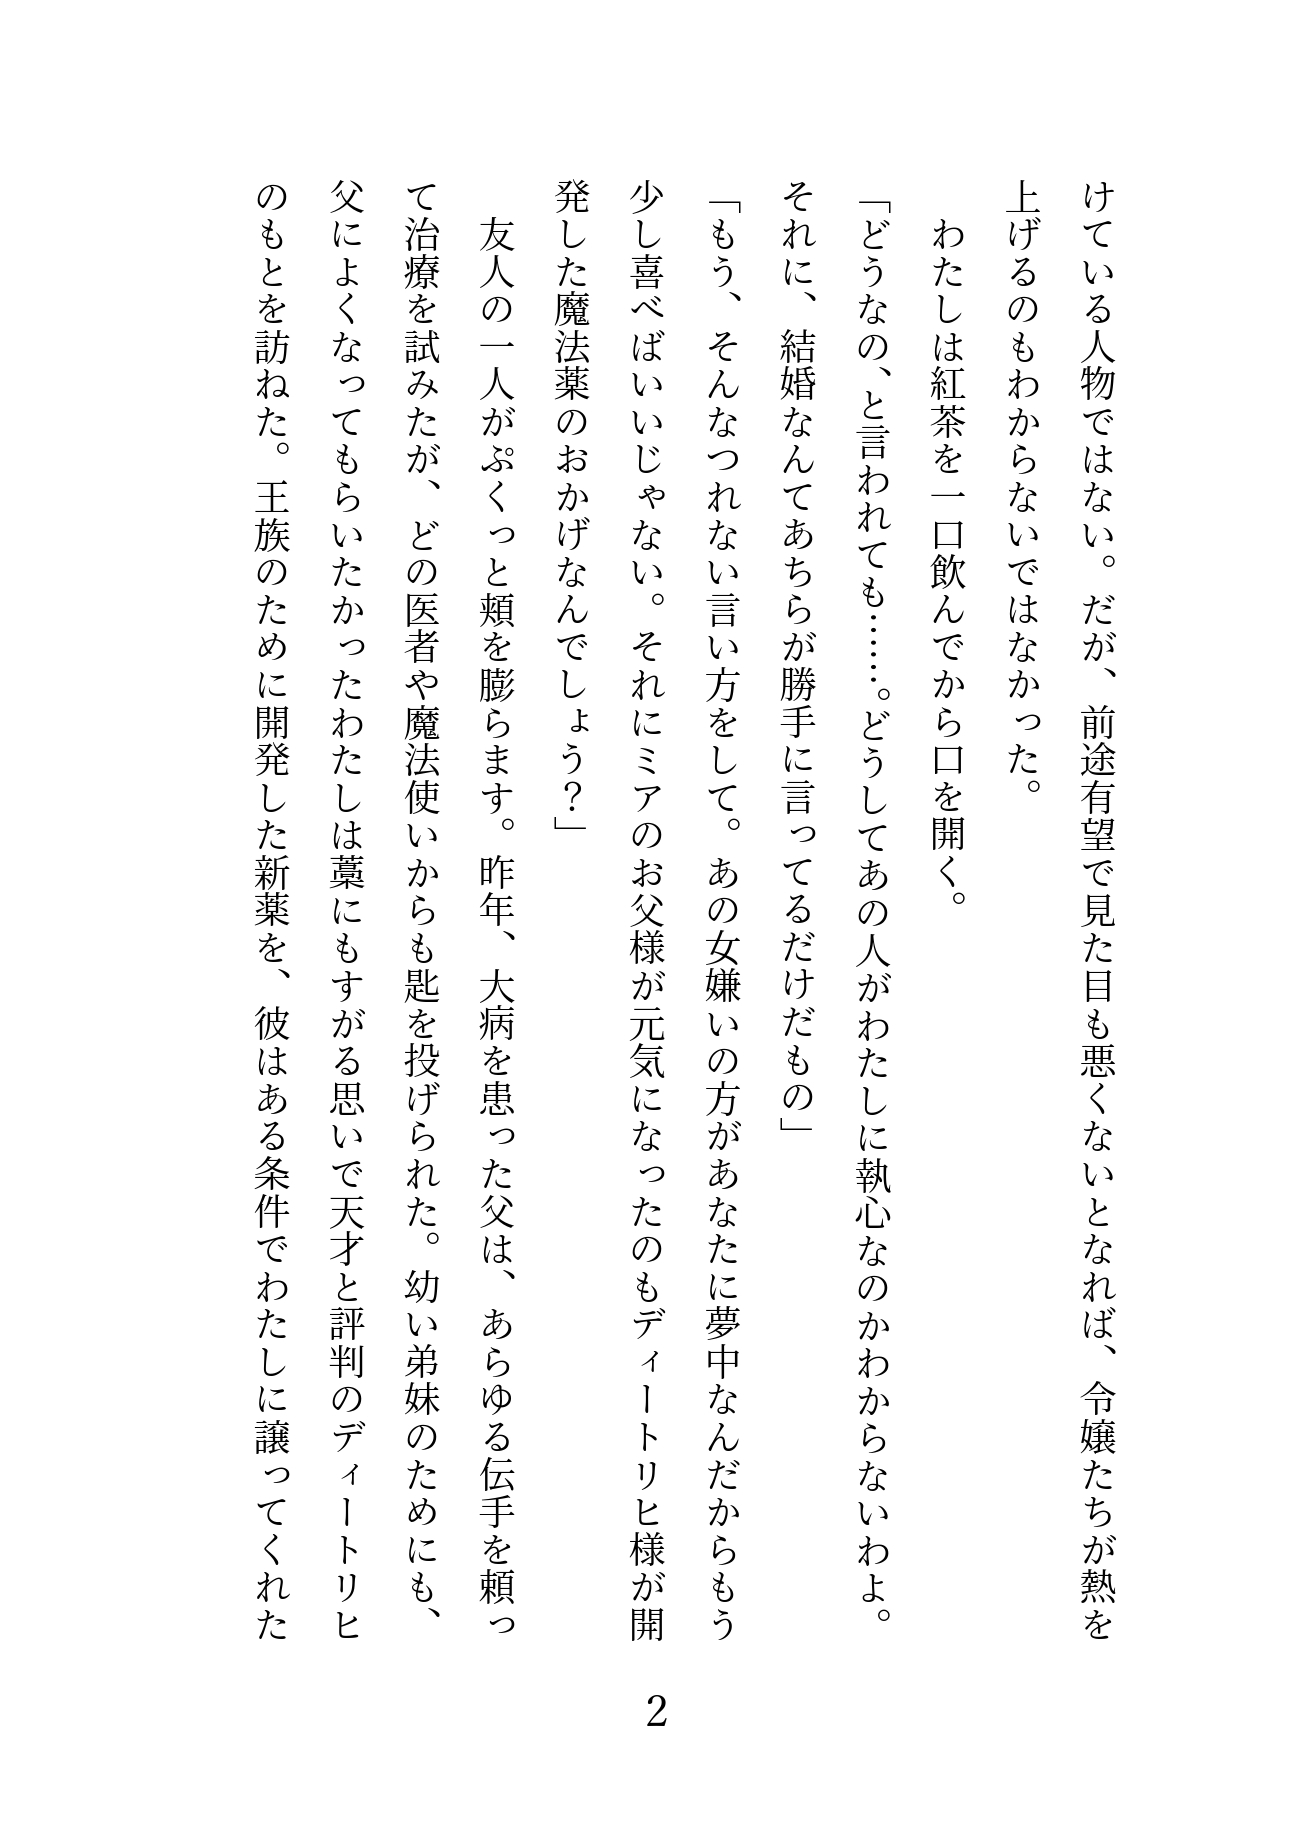 けている人物ではない。だが、前途有望で見た目も悪くないとなれば、令嬢たちが熱を
上げるのもわからないではなかった。
　わたしは紅茶を一口飲んでから口を開く。
「どうなの、と言われても……。どうしてあの人がわたしに執心なのかわからないわよ。
それに、結婚なんてあちらが勝手に言ってるだけだもの」
「もう、そんなつれない言い方をして。あの女嫌いの方があなたに夢中なんだからもう
少し喜べばいいじゃない。それにミアのお父様が元気になったのもディートリヒ様が開
発した魔法薬のおかげなんでしょう？」
　友人の一人がぷくっと頬を膨らます。昨年、大病を患った父は、あらゆる伝手を頼っ
て治療を試みたが、どの医者や魔法使いからも匙を投げられた。幼い弟妹のためにも、
父によくなってもらいたかったわたしは藁にもすがる思いで天才と評判のディートリヒ
のもとを訪ねた。王族のために開発した新薬を、彼はある条件でわたしに譲ってくれた
2